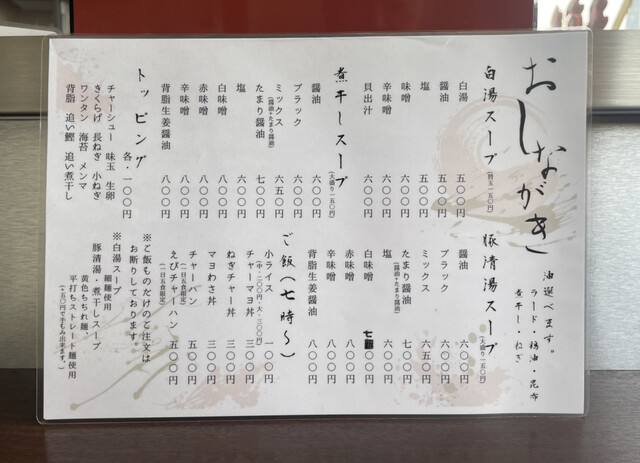 おしながき
油選べます。
ラード・鶏油・昆布
煮干し・ねぎ
白湯スープ(替玉一五〇円)
白湯 五〇〇円
醤油 五〇〇円
塩 五〇〇円
味噌 六〇〇円
辛味噌 六〇〇円
貝出汁 六〇〇円
豚清湯スープ(大盛り一五〇円)
醤油 六〇〇円
ブラック 六〇〇円
ミックス 六五〇円
(醤油+たまり醤油)
たまり醤油 七〇〇円
塩 六〇〇円
白味噌 七〇〇円
赤味噌 八〇〇円
辛味噌 八〇〇円
背脂生姜醤油 八〇〇円
煮干しスープ(大盛り一五〇円)
醤油 六〇〇円
ブラック 六〇〇円
ミックス 六五〇円
(醤油+たまり醤油)
たまり醤油 七〇〇円
塩 六〇〇円
白味噌 八〇〇円
赤味噌 八〇〇円
辛味噌 八〇〇円
背脂生姜醤油 八〇〇円
ご飯(七時〜)
小ライス 一〇〇円
(中・二〇〇円・大・三〇〇円)
チャーマヨ丼 三〇〇円
ねぎチャー丼 三〇〇円
マヨわさ丼 三〇〇円
チャーハン 五〇〇円
(一日五食限定)
えびチャーハン 六〇〇円
(一日五食限定)
トッピング
各・一〇〇円
チャーシュー 味玉 生卵
きくらげ 長ねぎ 小ねぎ
ワンタン 海苔 メンマ
背脂 追い鰹 追い煮干し
※ご飯ものだけのご注文は
お断りしております。
※白湯スープ
細麺使用
豚清湯・煮干しスープ
黄色ちぢれ麺、
平打ちストレート麺使用
(+五〇円で手もみ出来ます。)